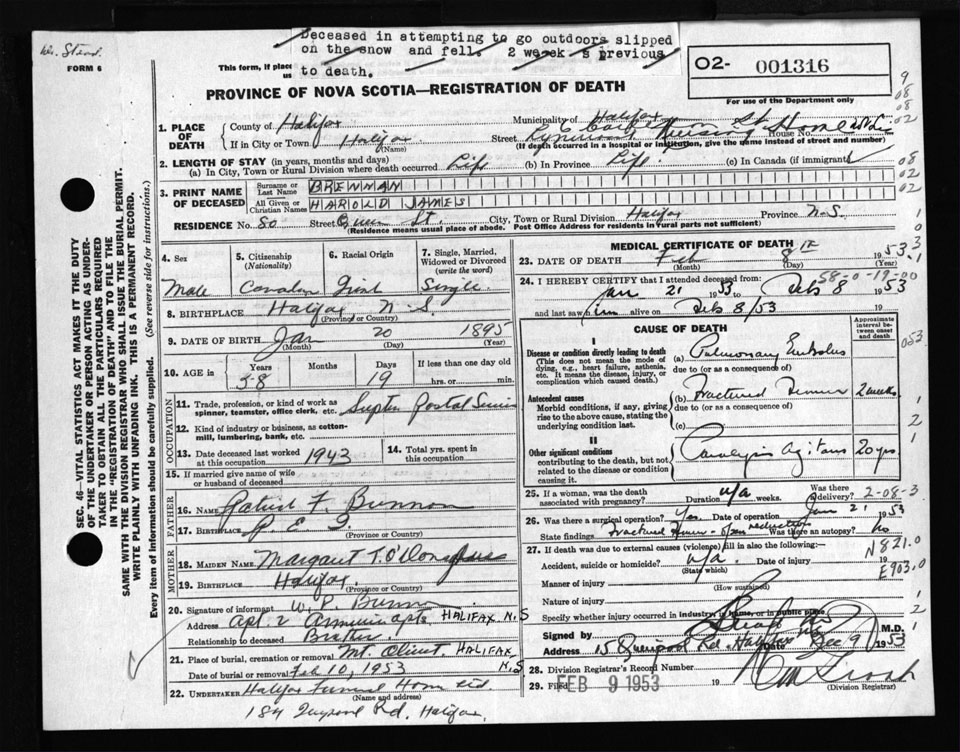 Deceased in attempting to go outdoors slipped
on the snow and fell. 2 weeks previous
to death.
FORM 6
This form, if place
us
PROVINCE OF NOVA SCOTIA—REGISTRATION OF DEATH
O2- 001316
For use of the Department only
1. PLACE OF DEATH
County of Halifax
Municipality of Halifax
If in City or Town Halifax (Name)
Street House No.
(If death occurred in a hospital or institution, give the name instead of street and number)
2. LENGTH OF STAY (in years, months and days)
(a) In City, Town or Rural Division where death occurred Life (b) In Province Life (c) In Canada (if immigrant)
3. PRINT NAME OF DECEASED
Surname or Last Name BRENNAN
All Given or Christian Names HAROLD JAMES
RESIDENCE No. 80 Street Queen St. City, Town or Rural Division Halifax Province N.S.
(Residence means usual place of abode. Post Office Address for residents in rural parts not sufficient)
4. Sex
Male
5. Citizenship (Nationality)
Canadian
6. Racial Origin
Irish
7. Single, Married, Widowed or Divorced (write the word)
Single
8. BIRTHPLACE Halifax N.S.
(Province or Country)
9. DATE OF BIRTH Jan 20 1895
(Month) (Day) (Year)
10. AGE in Years Months Days If less than one day
58 19 hrs. or min.
OCCUPATION
11. Trade, profession, or kind of work as spinner, teamster, office clerk, etc. Postal
12. Kind of industry or business, as cotton-mill, lumbering, bank, etc.
13. Date deceased last worked at this occupation 1943
14. Total yrs. spent in this occupation
15. If married give name of wife or husband of deceased
FATHER
16. NAME Patrick F. Brennan
17. BIRTHPLACE P.E.I.
(Province or Country)
MOTHER
18. MAIDEN NAME Margaret T. O'Donoghue
19. BIRTHPLACE Halifax
(Province or Country)
20. Signature of informant W. P. Brennan
Address Apt. 2 apts HALIFAX N.S
Relationship to deceased Brother
21. Place of burial, cremation or removal Mt. Olivet. HALIFAX N.S
Date of burial or removal Feb 10, 1953
22. UNDERTAKER Halifax Funeral Home Ltd.
(Name and address)
Rd. Halifax.
MEDICAL CERTIFICATE OF DEATH
23. DATE OF DEATH Feb 8 1953
(Month) (Day) (Year)
58-0-19-00
24. I HEREBY CERTIFY that I attended deceased from:
Jan 21 1953 to Feb 8 1953
and last saw him alive on Feb 8/53 19
CAUSE OF DEATH
Approximate interval between onset and death
I
Disease or condition directly leading to death
(This does not mean the mode of dying, e.g., heart failure, asthenia, etc. It means the disease, injury, or complication which caused death.)
(a) Pulmonary Embolus
due to (or as a consequence of)
Antecedent causes
Morbid conditions, if any, giving rise to the above cause, stating the underlying condition last.
(b) Fractured Femur 2 weeks
due to (or as a consequence of)
(c)
II
Other significant conditions contributing to the death, but not related to the disease or condition causing it.
Paralysis Agitans 20 yrs
25. If a woman, was the death associated with pregnancy? n/a Duration weeks. Was there delivery?
2-08-3
26. Was there a surgical operation? Yes. Date of operation Jan 21 1953
State findings Fractured Femur - open reduction Was there an autopsy? No
27. If death was due to external causes (violence) fill in also the following:—
N821.0
Accident, suicide or homicide? n/a Date of injury 19
(State which)
E903.0
Manner of injury
(How sustained)
Nature of injury
Specify whether injury occurred in industry, in home, or in public place
Signed M.D.
Address 15 Rd. Halifax Date 9 1953
28. Division Registrar's Record Number
29. Filed FEB 9 1953 19
(Division Registrar)
SEC. 46—VITAL STATISTICS ACT MAKES IT THE DUTY
OF THE UNDERTAKER OR PERSON ACTING AS UNDER-
TAKER TO OBTAIN ALL THE PARTICULARS REQUIRED
IN THE "REGISTRATION OF DEATH" AND TO FILE THE
SAME WITH THE DIVISION REGISTRAR WHO SHALL ISSUE THE BURIAL PERMIT.
WRITE PLAINLY WITH UNFADING INK. THIS IS A PERMANENT RECORD.
Every item of information should be carefully supplied. (See reverse side for instructions.)